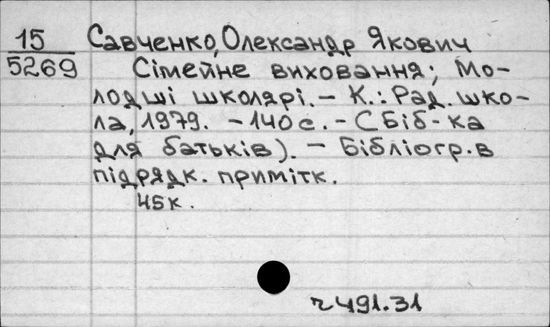 15
5269
Савченко, Олександр Якович
Сімейне виховання; Мо-
лодші школярі. - К.: Рад. шко-
ла, 1979. - 140 с. - (Біб-ка
для батьків). - Бібліогр. в
підрядк. примітк.
45к.
ч491.31